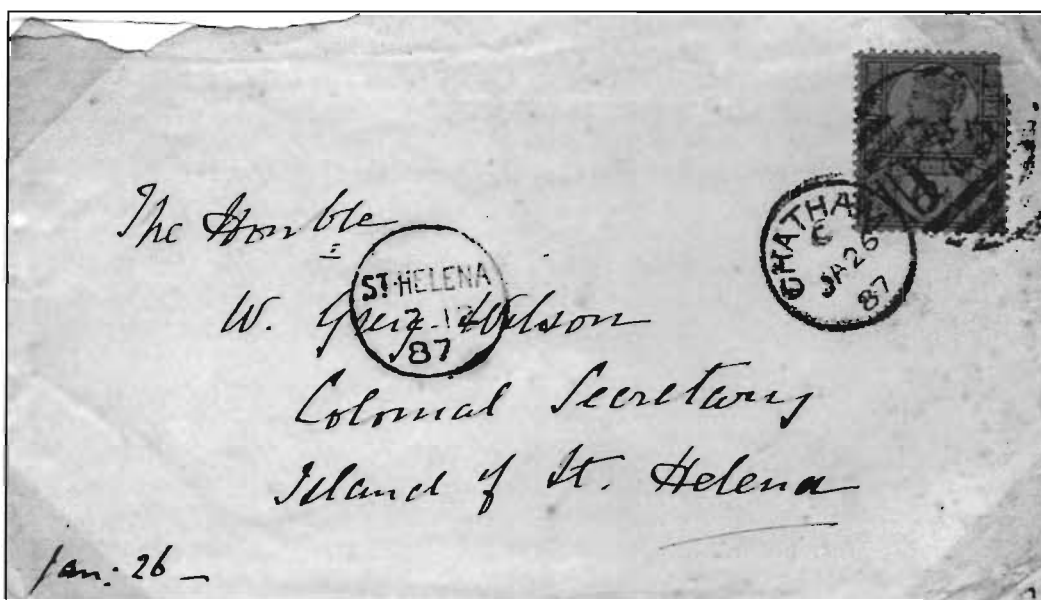 The Honble
W. Grey-Wilson
Colonial Secretary
Island of St. Helena
Jan: 26
ST. HELENA
87
CHATHAM
C
JA 26
87